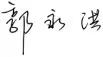 郭永洪